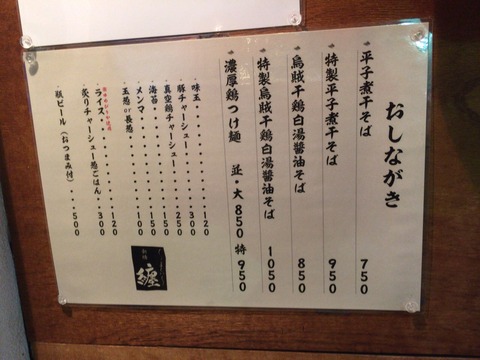 おしながき
平子煮干そば 750
特製平子煮干そば 950
烏賊干鶏白湯醬油そば 850
特製烏賊干鶏白湯醬油そば 1050
濃厚鶏つけ麺 並・大 850 特 950
味玉・・・・・・・・・120
豚チャーシュー・・・・・300
真空鶏チャーシュー・・・250
海苔・・・・・・・・・150
メンマ・・・・・・・・150
玉葱or長葱・・・・・・100
ライス・・・・・・・・120
炙りチャーシュー葱ごはん・・・300
瓶ビール（おつまみ付）・・・500
纏